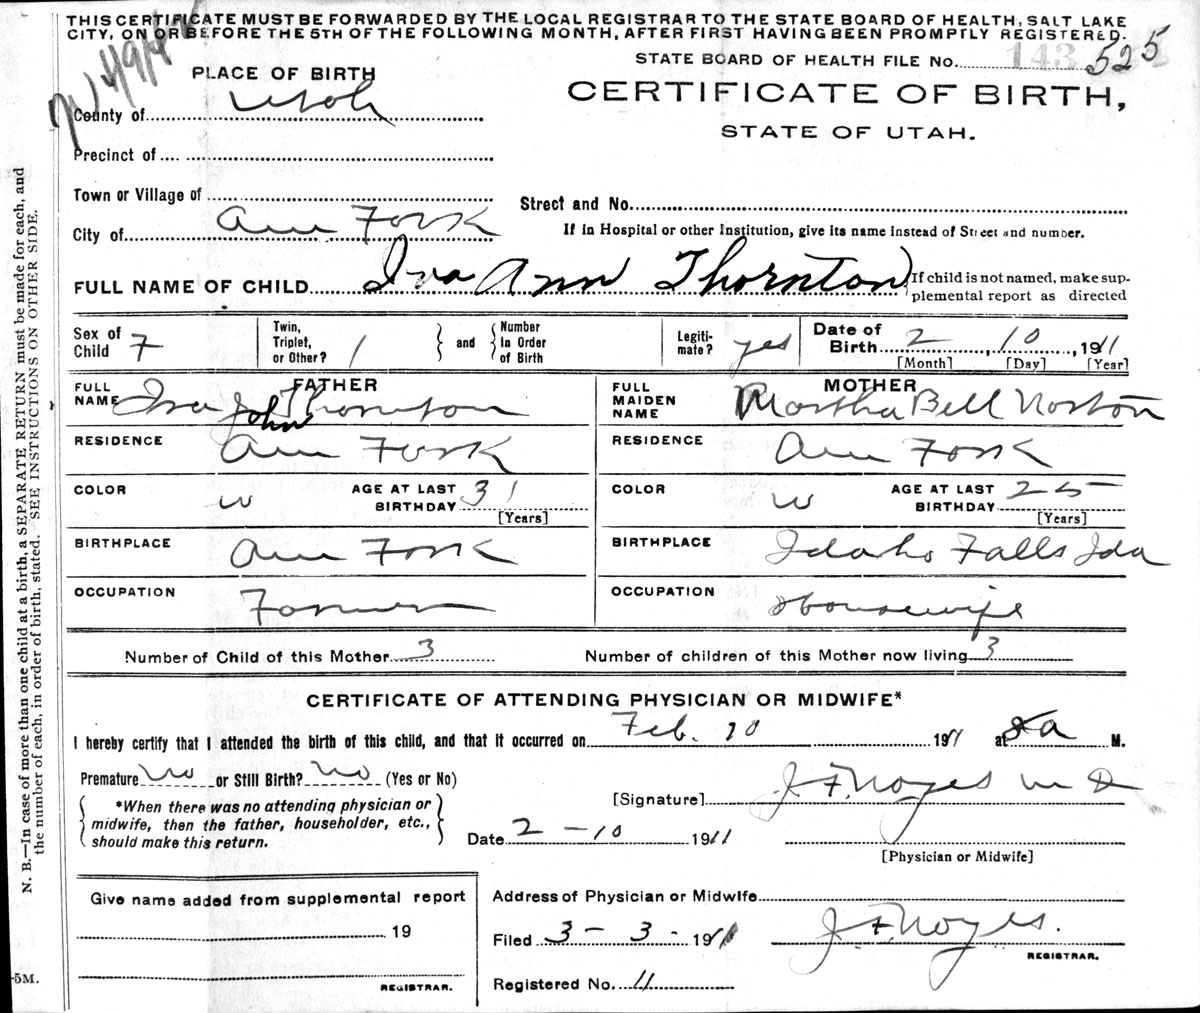 THIS CERTIFICATE MUST BE FORWARDED BY THE LOCAL REGISTRAR TO THE STATE BOARD OF HEALTH, SALT LAKE
CITY, ON OR BEFORE THE 5TH OF THE FOLLOWING MONTH, AFTER FIRST HAVING BEEN PROMPTLY REGISTERED.
STATE BOARD OF HEALTH FILE No. 143 525
PLACE OF BIRTH
CERTIFICATE OF BIRTH,
County of Utah
STATE OF UTAH.
Precinct of
Town or Village of
Street and No.
City of Am Fork
If in Hospital or other Institution, give its name instead of Street and number.
FULL NAME OF CHILD Iva Ann Thornton
If child is not named, make sup-
plemental report as directed
Sex of Child F
Twin, Triplet, or Other? 1
and
Number In Order of Birth
Legiti- mate? yes
Date of Birth 2, 10, 1911
[Month] [Day] [Year]
FATHER
FULL NAME Ira John Thornton
MOTHER
FULL MAIDEN NAME Martha Bell Norton
RESIDENCE Am Fork
RESIDENCE Am Fork
COLOR w AGE AT LAST BIRTHDAY 31
[Years]
COLOR w AGE AT LAST BIRTHDAY 25
[Years]
BIRTHPLACE Am Fork
BIRTHPLACE Idaho Falls Ida
OCCUPATION Farmer
OCCUPATION Housewife
Number of Child of this Mother 3
Number of children of this Mother now living 3
CERTIFICATE OF ATTENDING PHYSICIAN OR MIDWIFE*
I hereby certify that I attended the birth of this child, and that it occurred on Feb. 10 1911 at 8a M.
Premature No or Still Birth? No (Yes or No)
*When there was no attending physician or
midwife, then the father, householder, etc.,
should make this return.
[Signature] J. F. Noyes M D
Date 2-10 1911
[Physician or Midwife]
Give name added from supplemental report
19
REGISTRAR.
Address of Physician or Midwife
Filed 3-3- 1911
J F Noyes.
REGISTRAR.
Registered No. 11
N. B.—In case of more than one child at a birth, a SEPARATE RETURN must be made for each, and
the number of each, in order of birth, stated. SEE INSTRUCTIONS ON OTHER SIDE.
5M.